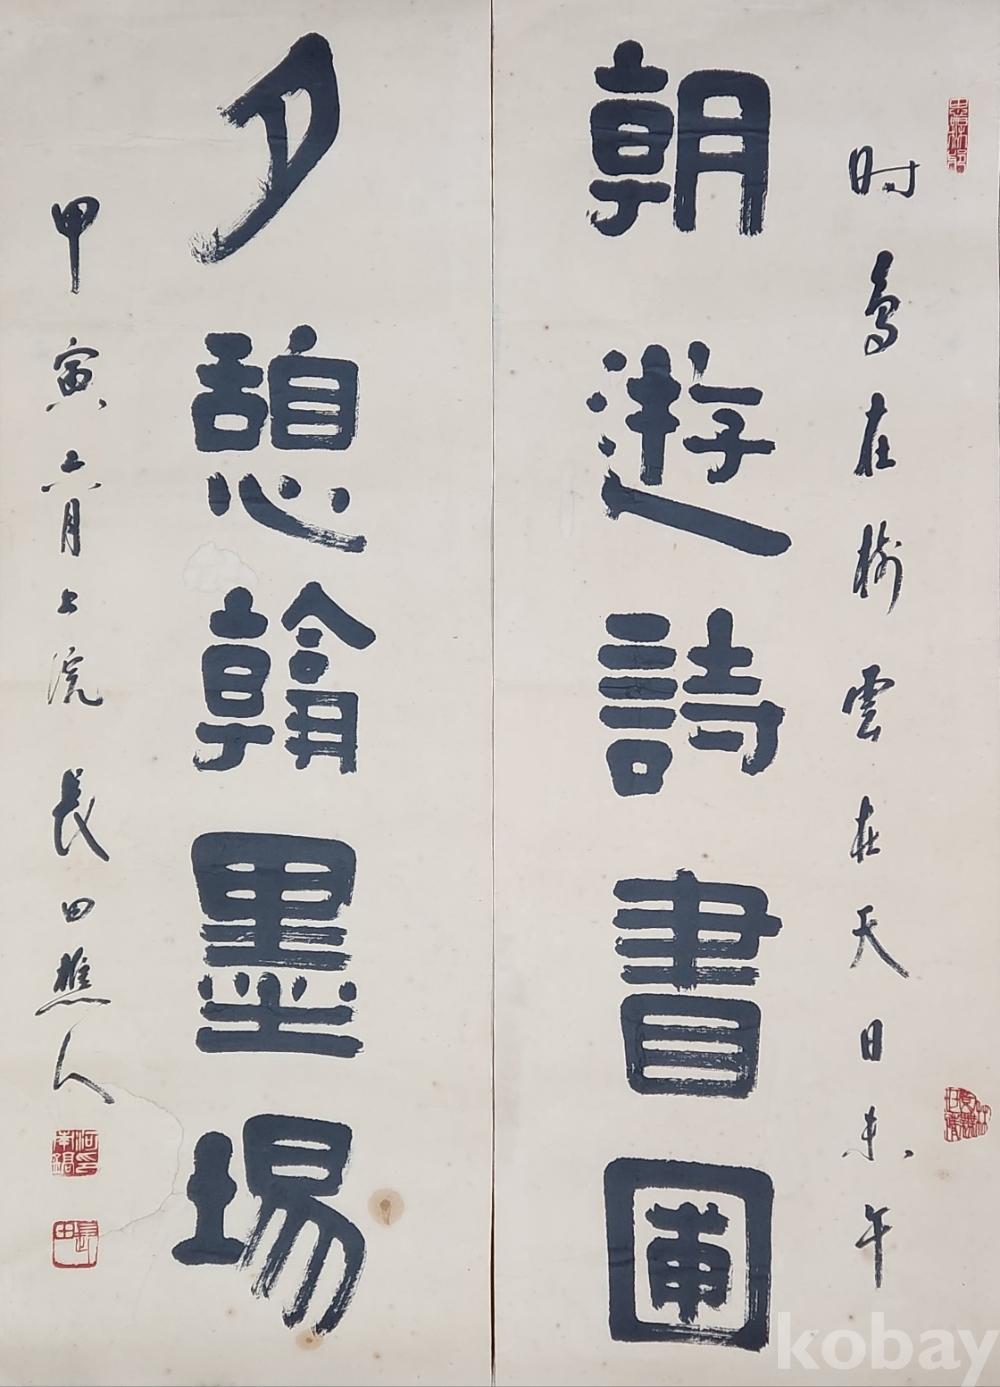 时鳥在樹雲在天日未午
朝遊詩書圃
夕憩翰墨場
甲寅六月上浣 長田樵人
長田
kobay